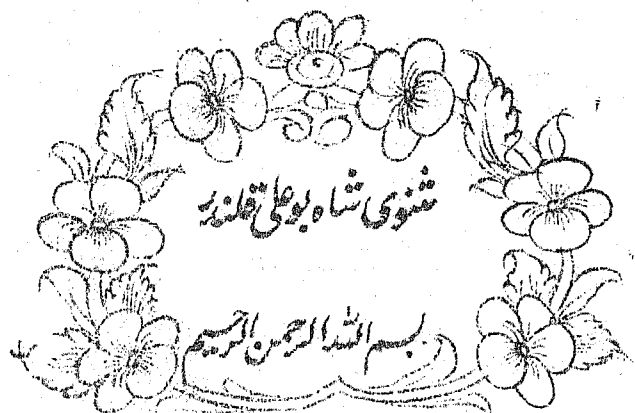 مثنوی شاہ بوعلی قلندر
بسم اللہ الرحمن الرحیم